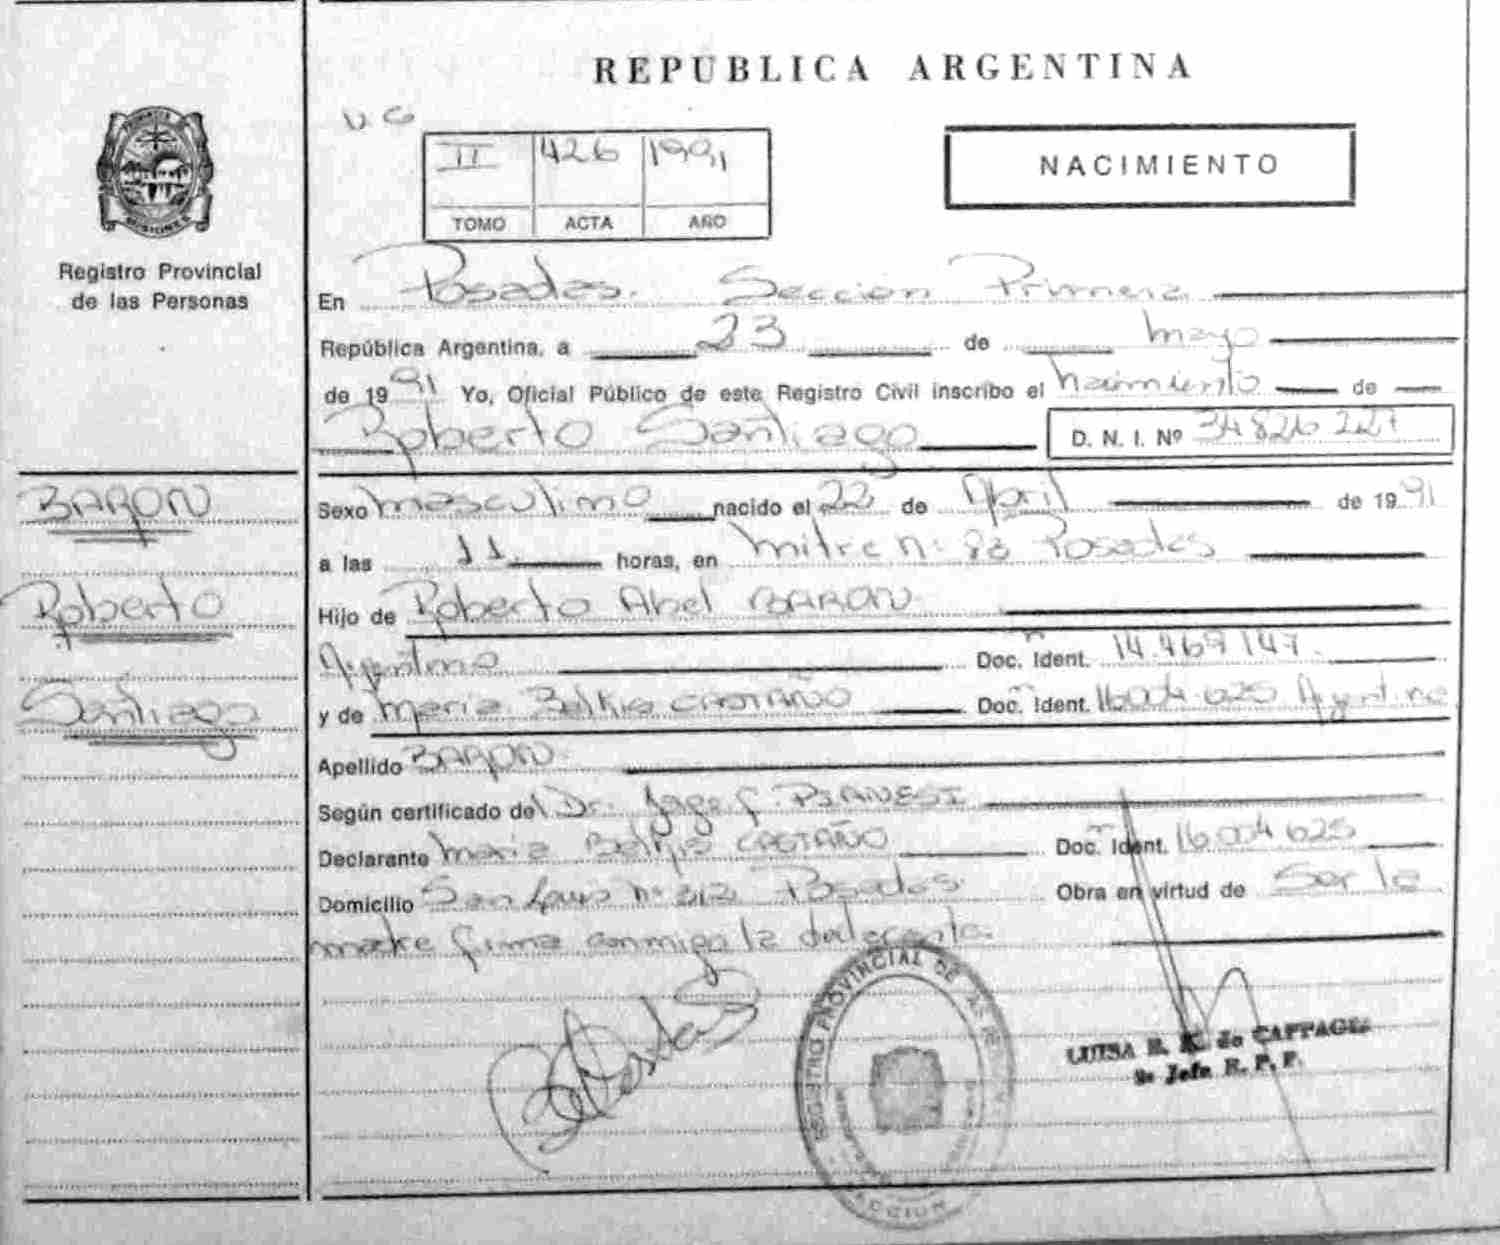 REPÚBLICA ARGENTINA
II 426 1991
TOMO ACTA AÑO
NACIMIENTO
PROVINCIA
MISIONES
Registro Provincial
de las Personas
En Posadas. Sección Primera
República Argentina, a 23 de mayo
de 1991 Yo, Oficial Público de este Registro Civil inscribo el nacimiento de
Roberto Santiago D. N. I. Nº 34 826 227
BARON
Roberto
Santiago
Sexo masculino nacido el 22 de Abril de 1991
a las 11 horas, en mitre nº 83 Posadas
Hijo de Roberto Abel BARON
Argentino Doc. Ident. 14.469 147.
y de maria Belkis CASTAÑO Doc. Ident. 16.004.625 Argentina
Apellido BARON
Según certificado del Dr. Jorge PIANESI
Declarante maria Belkis CASTAÑO Doc. Ident. 16.004 625
Domicilio San Luis nº 312 Posadas. Obra en virtud de Ser la
madre firma conmigo la
REGISTRO PROVINCIAL DE LAS
LUISA de
Jefe R. P. P.